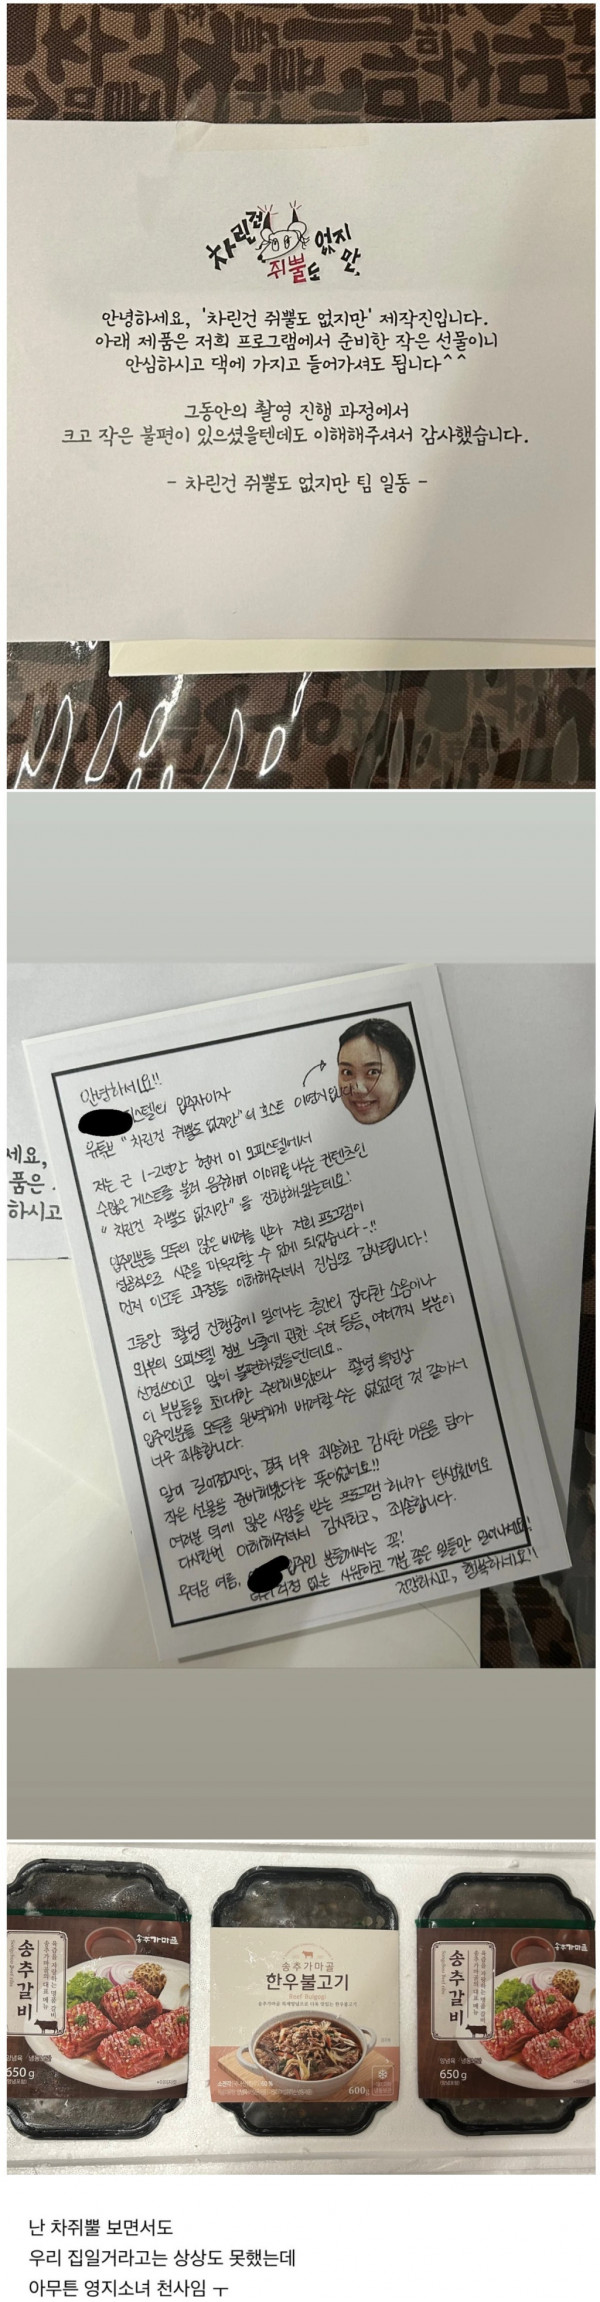 차린건 쥐뿔도 없지만
안녕하세요, '차린건 쥐뿔도 없지만' 제작진입니다.
아래 제품은 저희 프로그램에서 준비한 작은 선물이니
안심하시고 댁에 가지고 들어가셔도 됩니다^^
그동안의 촬영 진행 과정에서
크고 작은 불편이 있으셨을텐데도 이해해주셔서 감사했습니다.
- 차린건 쥐뿔도 없지만 팀 일동 -
세요,
품은
하시고
안녕하세요!!
피스텔의 입주자이자
유튜브 "차린건 쥐뿔도 없지만"의 호스트 이영지입니다
저는 근 1-2년간 현재 이 오피스텔에서
수많은 게스트를 불러 음주하며 이야기를 나누는 컨텐츠인
"차린건 쥐뿔도 없지만"을 진행해왔는데요!
입주민분들 모두의 많은 배려를 받아 저희 프로그램이
성공적으로 시즌을 마무리할 수 있게 되었습니다-!!
먼저 이 모든 과정을 이해해주셔서 진심으로 감사드립니다!
그동안 촬영 진행중에 일어나는 층간의 잡다한 소음이나
외부의 오피스텔 정보 노출에 관한 우려 등등, 여러가지 부분이
신경쓰이고 많이 불편하셨을텐데요..
이 부분들을 최대한 주의해보았으나 촬영 특성상
입주민분들 모두를 완벽하게 배려할 수는 없었던 것 같아서
너무 죄송합니다.
말이 길어졌지만, 결국 너무 죄송하고 감사한 마음을 담아
작은 선물을 준비해봤다는 뜻이었어요!!
여러분 덕에 많은 사랑을 받는 프로그램 하나가 탄생했어요
다시한번 이해해주셔서 감사하고, 죄송합니다.
무더운 여름, 입주민 분들께서는 꼭!
걱정 없는 시원하고 기분 좋은 일들만 일어나세요!
건강하시고, 행복하세요!!
송추갈비
650g
송추가마골
한우불고기
Beef Bulgogi
600g
송추가마골
송추갈비
650g
난 차쥐뿔 보면서도
우리 집일거라고는 상상도 못했는데
아무튼 영지소녀 천사임 ㅜ